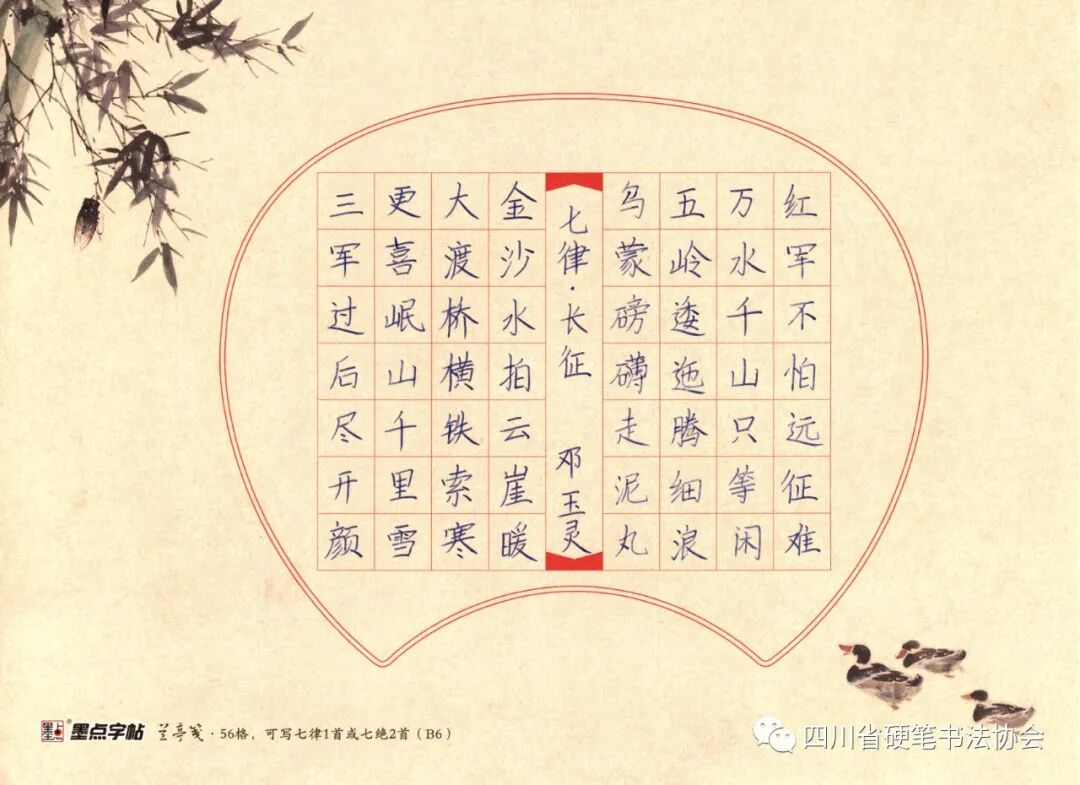 红军不怕远征难
万水千山只等闲
五岭逶迤腾细浪
乌蒙磅礴走泥丸
七律·长征 邓玉灵
金沙水拍云崖暖
大渡桥横铁索寒
更喜岷山千里雪
三军过后尽开颜
墨点 ® 墨点字帖 兰亭笺·56格，可写七律1首或七绝2首（B6）
四川省硬笔书法协会